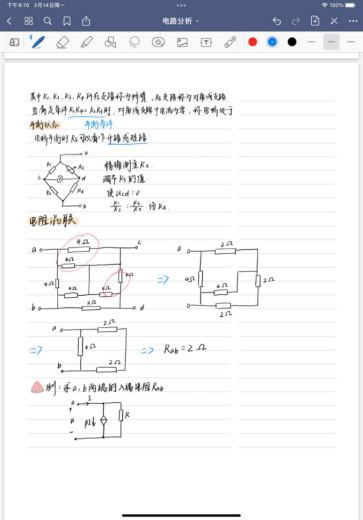 下午8:10 3月14日周一
100%
电路分析
其中R₁、R₂、R₃、R₄所在支路称为桥臂,R₅支路称为对角线支路
当满足条件R₁R₄=R₂R₃时,对角线支路中电流为零,称电桥处于
平衡状态 平衡条件
电桥平衡时R₅可以看作开路或短路
a
R₁
c d
R₄
b
精确测量Rx
调节R₃的值
使Ucd=0
得Rx
电阻混联
a 4Ω c
4Ω
4Ω 4Ω
4Ω 4Ω
b 2Ω d
⇒
a 2Ω
4Ω 4Ω 2Ω
2Ω
⇒
a 2Ω
4Ω
b 2Ω
⇒ Rab=2Ω
例:求a,b两端的入端电阻Rab
a I
+
u βIb R
-